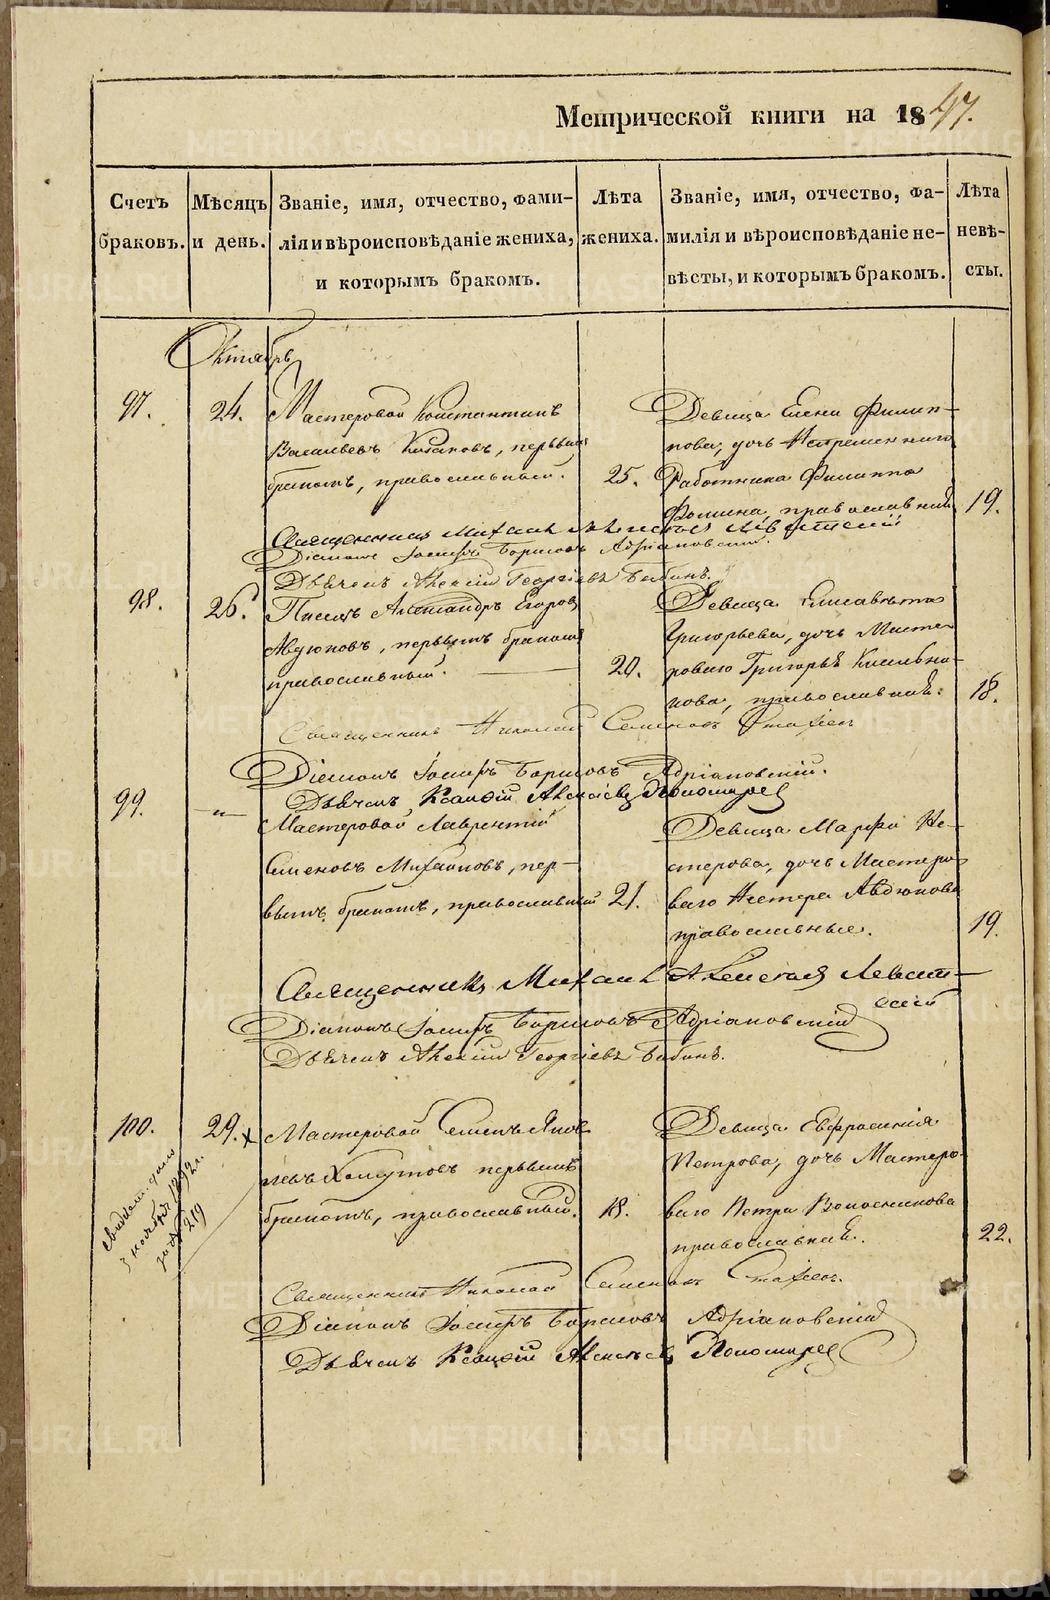 Метрической книги на 1847.
Счетъ браковъ.
Мѣсяцъ и день.
Званіе, имя, отчество, фами-
лія и вѣроисповѣданіе жениха,
и которымъ бракомъ.
Лѣта жениха.
Званіе, имя, отчество, фа-
милія и вѣроисповѣданіе не-
вѣсты, и которымъ бракомъ.
Лѣта невѣ-
сты.
Октябрь
97.
24.
Мастеровой Константинъ
Васильевъ Кабаковъ, первымъ
бракомъ, православный.
25.
Девица Елена Филип-
пова, дочь Непременнаго
Работника Филиппа
Фомина, православная
19.
Священникъ Михаилъ Алексеевъ Левитскій
Діаконъ Іосифъ Борисовъ Адріановскій.
Дьячекъ Алексій Георгіевъ Бабинъ.
98.
26.
Писецъ Александръ Егоровъ
Авдюковъ, первымъ бракомъ
православный.
20.
Девица Елисавета
Григорьева, дочь Масте-
роваго Григорья
православная.
18.
Священникъ Николай Семеновъ
Діаконъ Іосифъ Борисовъ Адріановскій.
Дьячекъ Алексѣевъ Пономаревъ
99.
-"-
Мастеровой Лаврентій
Семеновъ Михайловъ, пер-
вымъ бракомъ, православный
21.
Девица Марфа Не-
стерова, дочь Мастеро-
ваго Нестера Авдюкова
православные.
19.
Священникъ Михаилъ Алексеевъ Левит-
скій
Діаконъ Іосифъ Борисовъ Адріановскій
Дьячекъ Алексій Георгіевъ Бабинъ.
100.
29. х
Мастеровой Семенъ Яков-
левъ Хомутовъ первымъ
бракомъ, православный.
18.
Девица Евфросинія
Петрова, дочь Мастеро-
ваго Петра
православная.
22.
ноября 1892 г.
за № 219
Священникъ Николай Семеновъ
Діаконъ Іосифъ Борисовъ Адріановскій
Дьячекъ Алексѣевъ Пономаревъ
METRIKI.GASO-URAL.RU